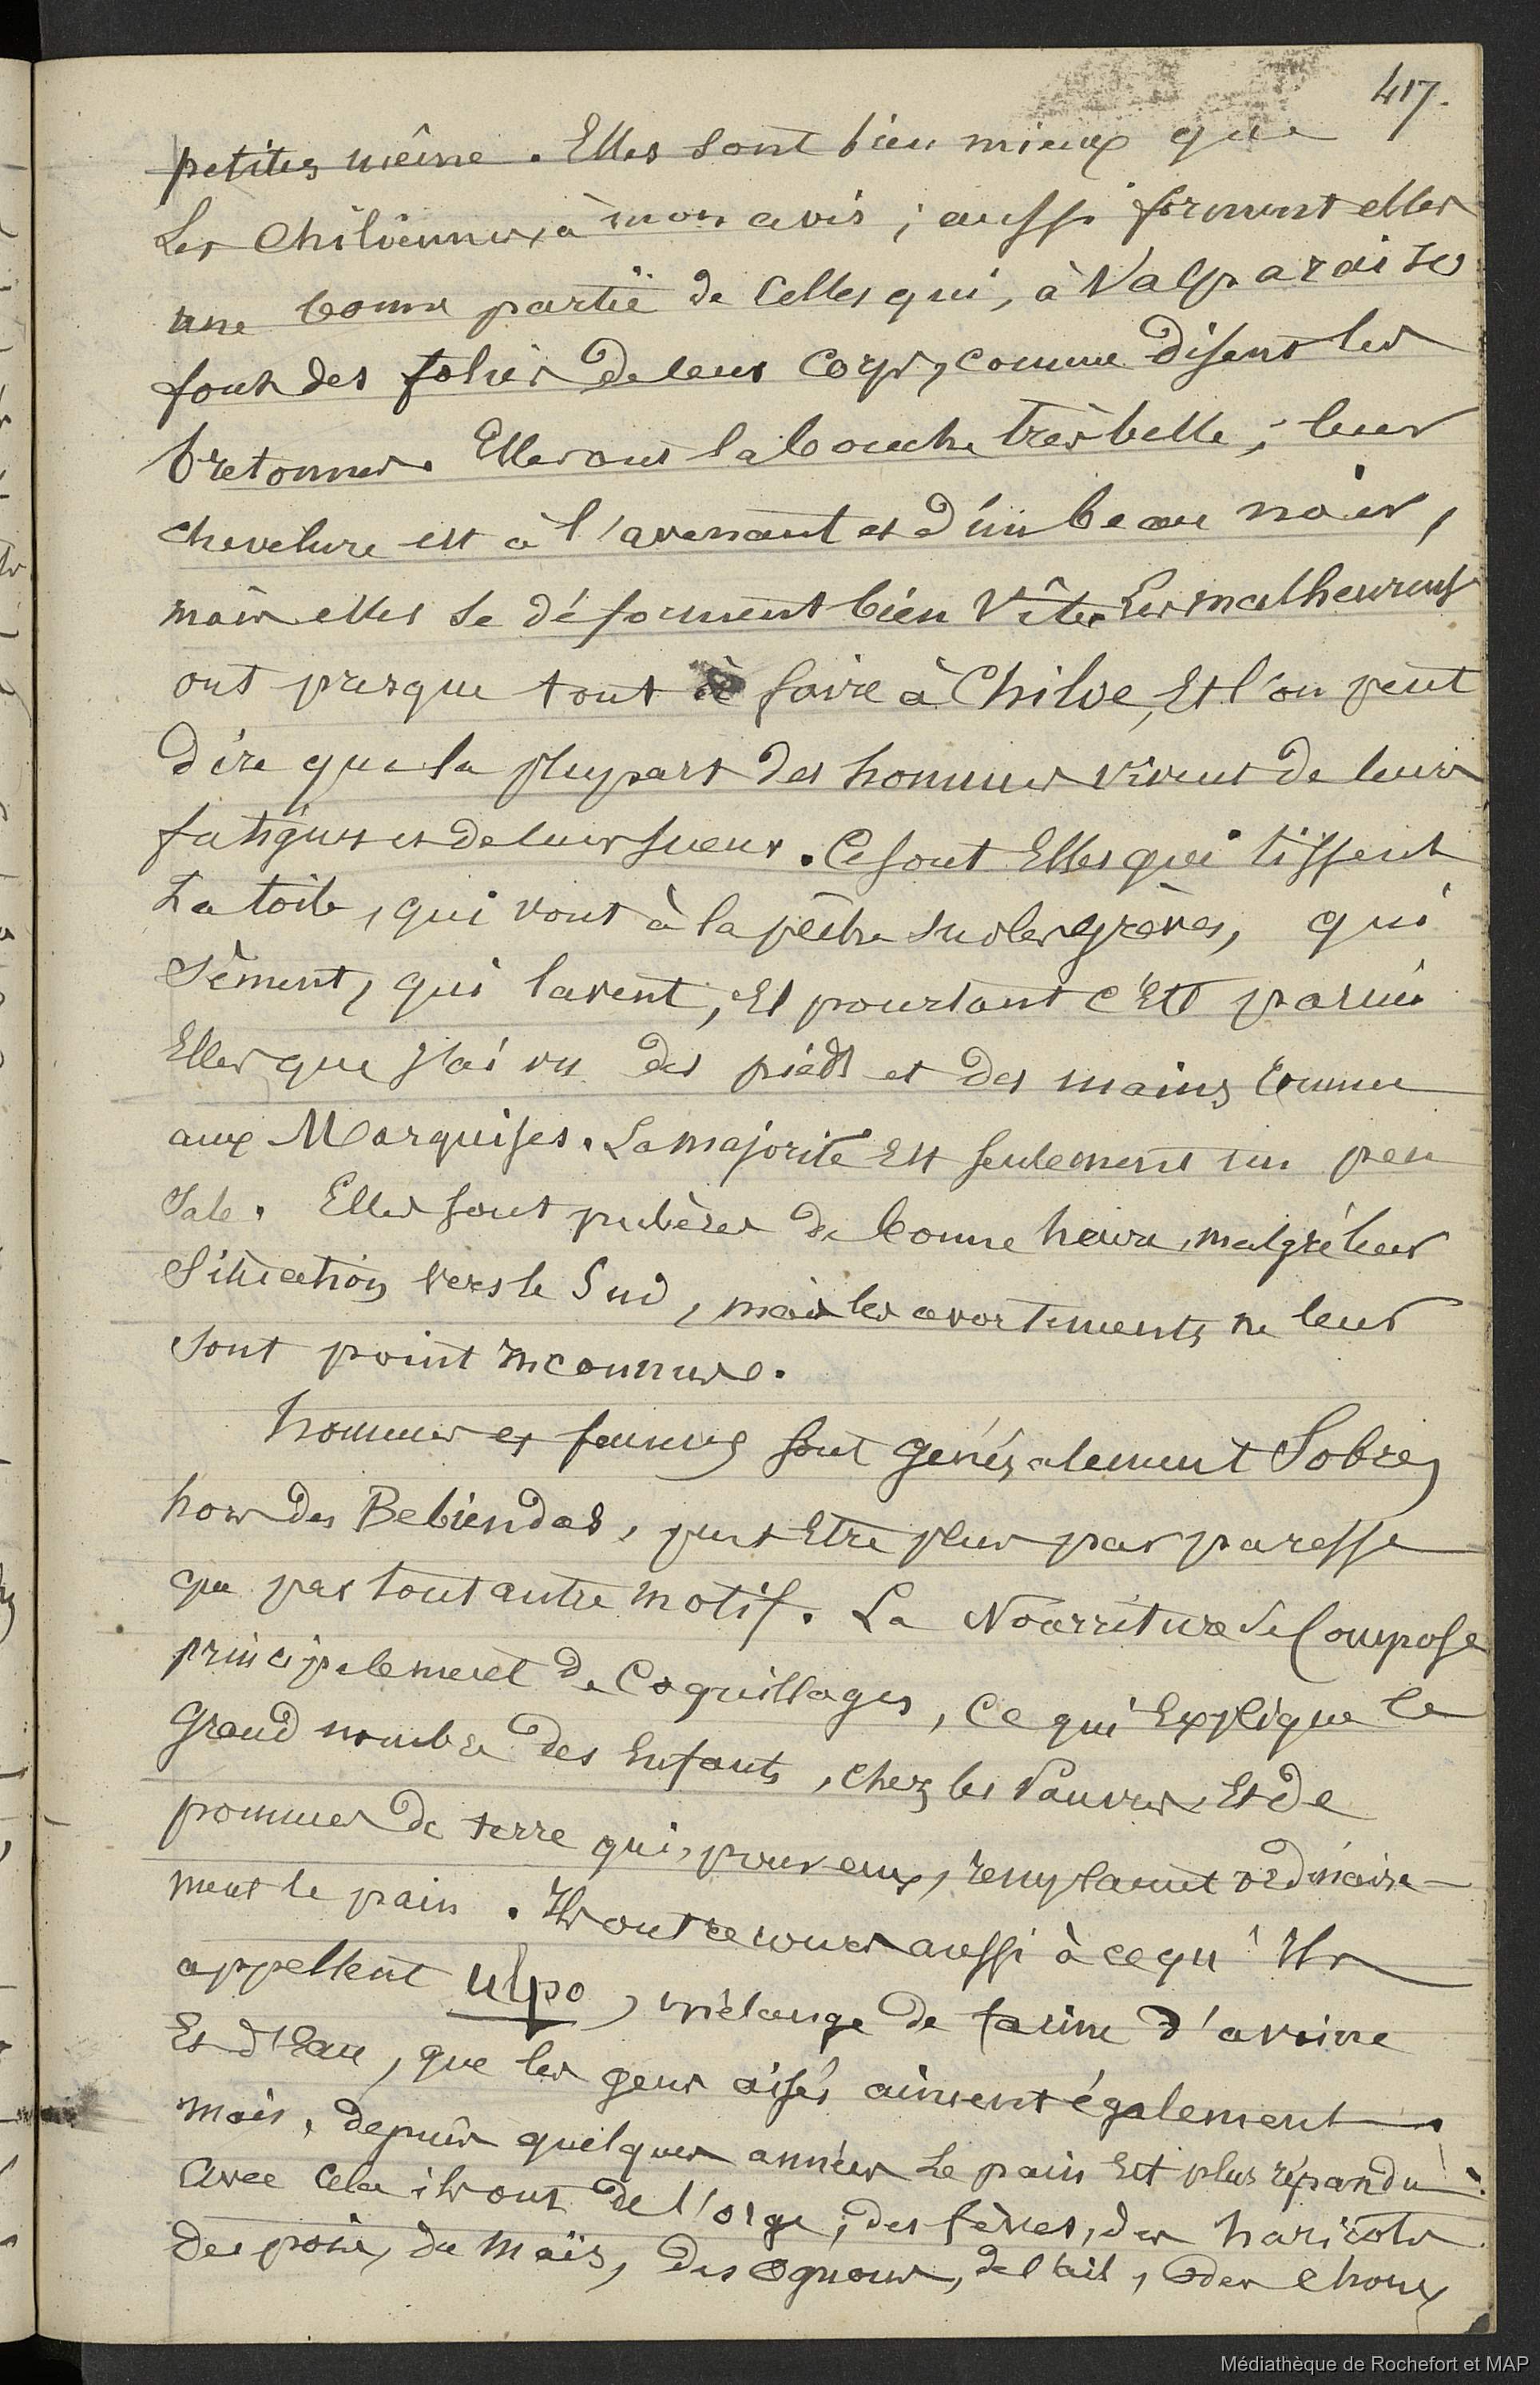 417.
petites même. Elles sont bien mieux que
Les Chiliennes, à mon avis ; aussi forment elles
une bonne partie de celles qui, à Valparaiso
font des folies de leur corps, comme disent les
bretonnes. Elles ont la bouche très belle ; leur
chevelure est à l'avenant et d'un beau noir,
mais elles se déforment bien vite. Les malheureuses
ont presque tout à faire à Chiloe, Et l'on peut
dire que la plupart des hommes vivent de leurs
fatigues et de leur sueur. Ce sont Elles qui tissent
La toile, qui vont à la pêche sur les grèves, qui
Sèment, qui lavent, Et pourtant c'est parmi
Elles que j'ai vu des pieds et des mains comme
aux Marquises. La majorité Est seulement un peu
Sale. Elles sont pubères de bonne heure, malgré leur
Situation vers le Sud, mais les avortements ne leur
sont point inconnus.
hommes et femmes sont généralement Sobres
hors des Bebiendas, peut Etre plus par paresse
que par tout autre motif. La Nourriture se Compose
principalement de Coquillages, Ce qui Explique le
Grand nombre des Enfants, chez les Pauvres, Et de
pommes de terre qui, pour eux, remplacent ordinaire-
ment le pain. Ils ont recours aussi à ce qu'Ils
appellent ulpo, mélange de farine d'avoine
Et d'Eau, que les gens aisés aiment également.
Mais, depuis quelques années Le pain Est plus répandu.
Avec Cela ils ont de l'orge, des fèves, des haricots
des pois, du Maïs, des ognons, de l'ail, des choux
Médiathèque de Rochefort et MAP